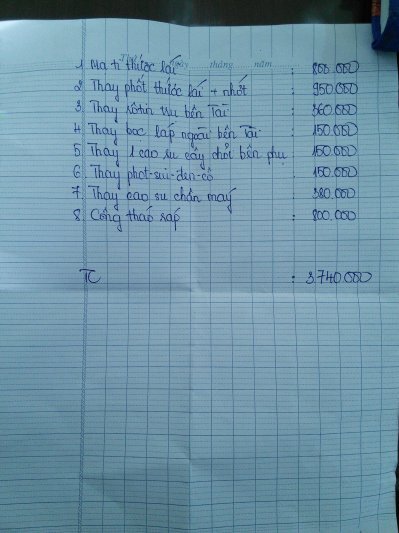 Thứ ngày ...... tháng ...... năm ......
1 Ma ti thước lái : 800.000
2 Thay phốt thước lái + nhớt : 950.000
3 Thay rôtin trụ bên Tài : 360.000
4 Thay bạc lắp ngoài bên Tài : 150.000
5 Thay 1 cao su cây chỏi bên phụ : 150.000
6 Thay phot-sui-đen-cô : 150.000
7 Thay cao su chân máy : 380.000
8 Công tháo ráp : 800.000
TC : 3.740.000